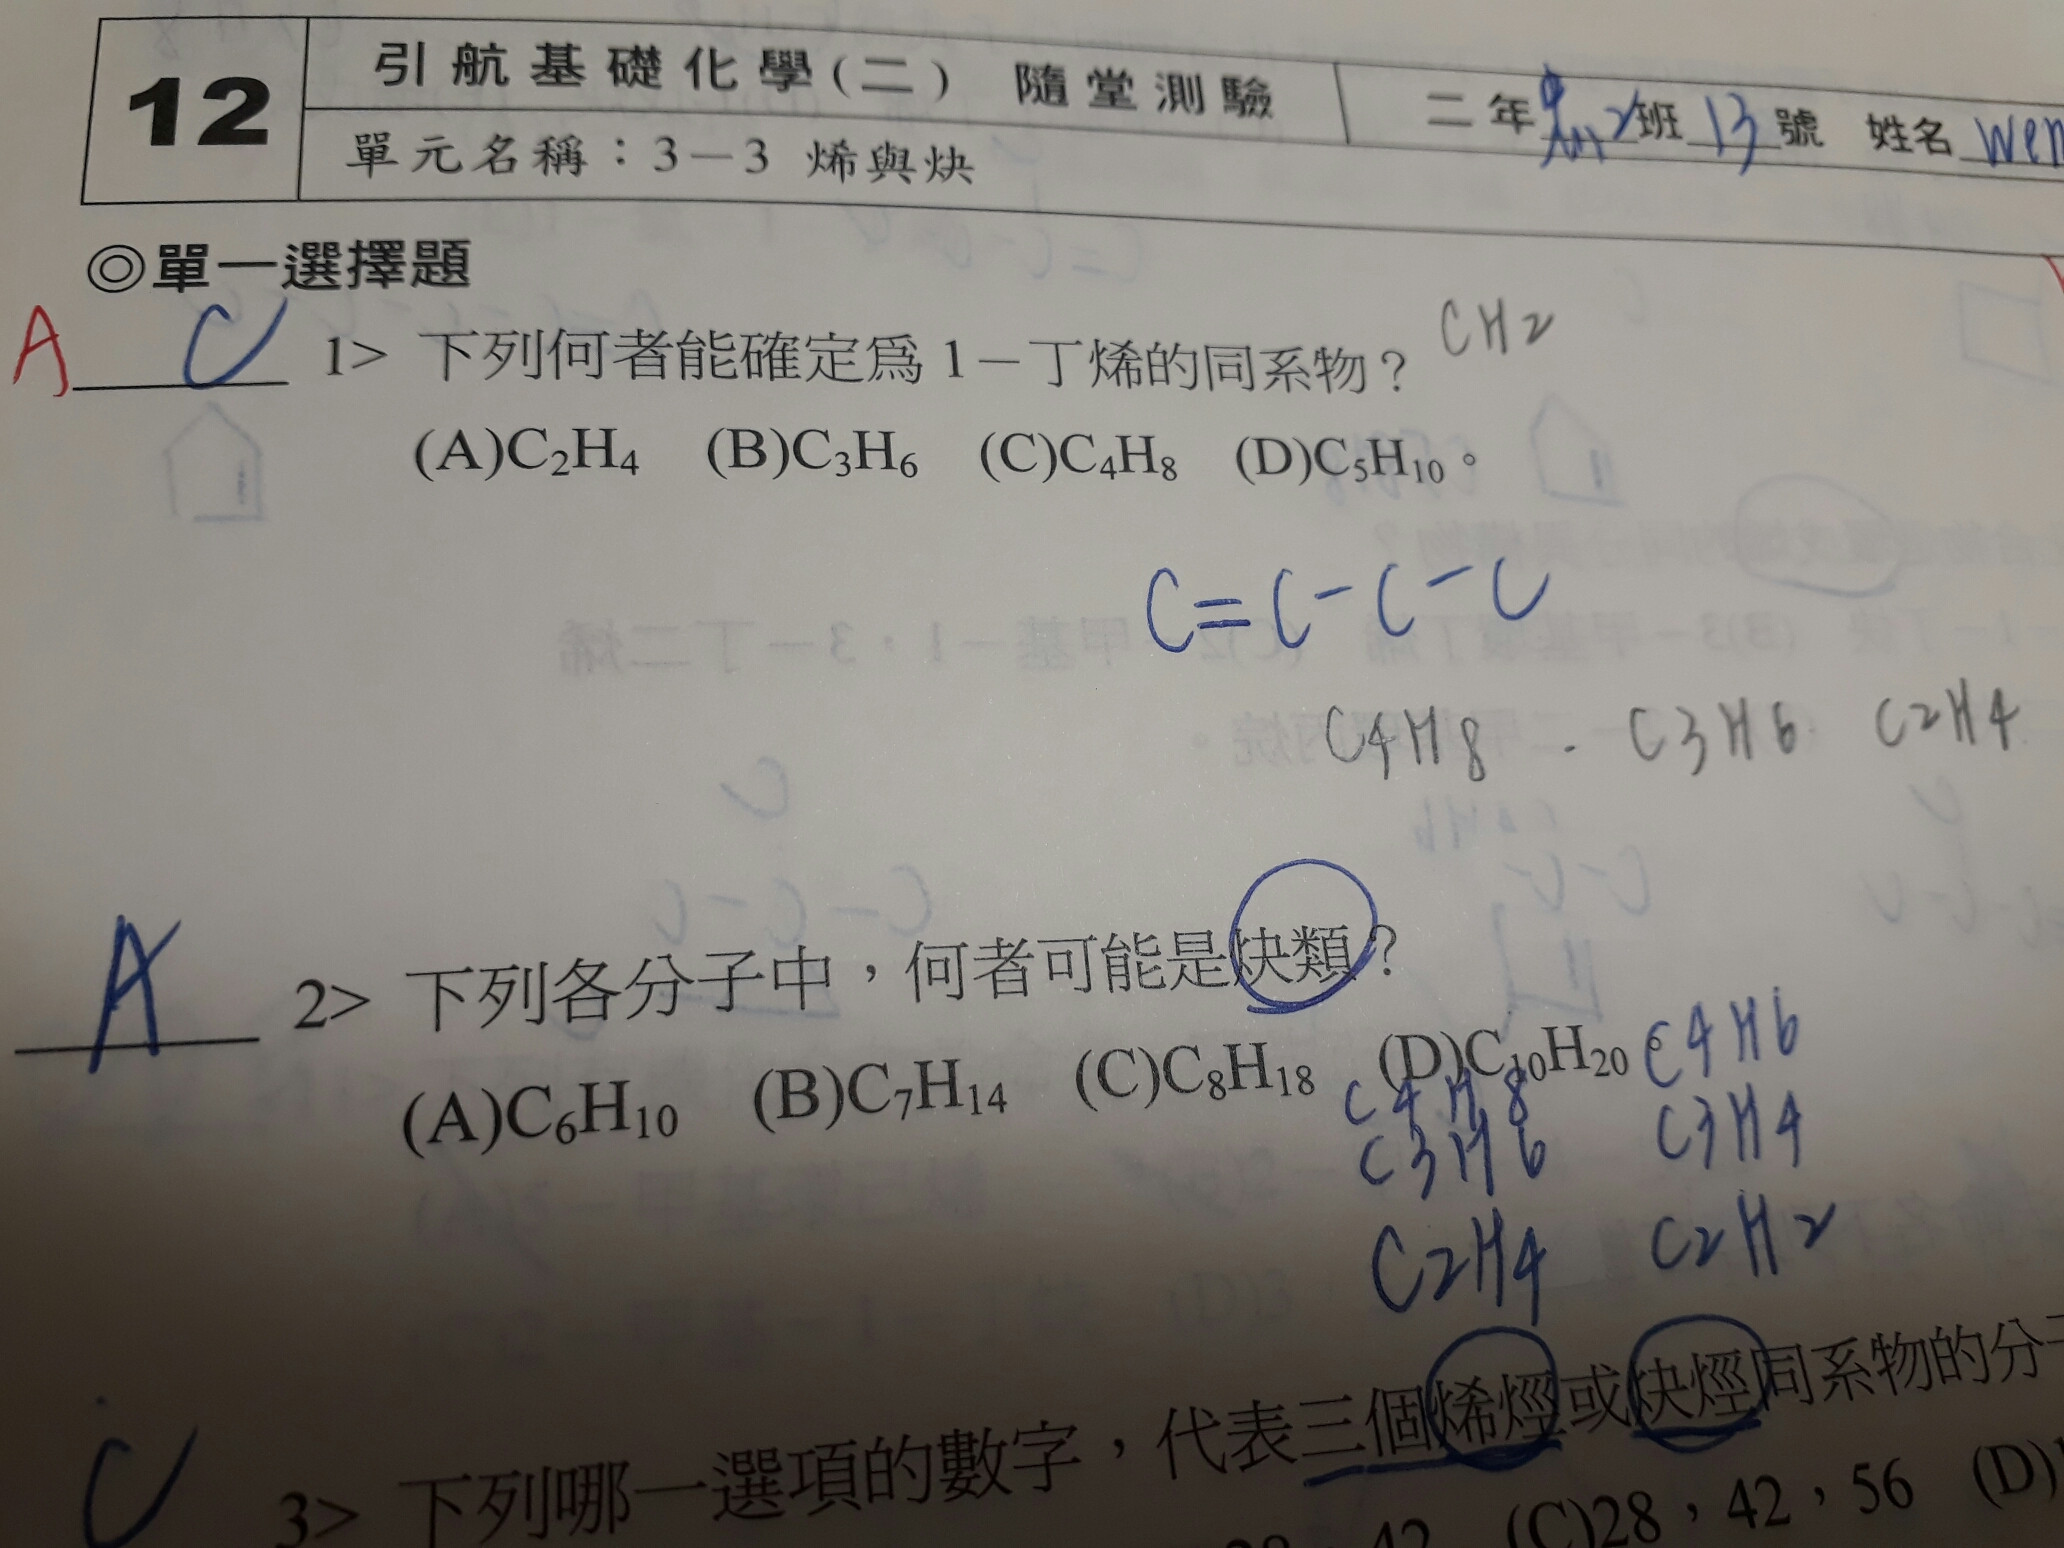 12
引航基礎化學(二) 隨堂測驗
二年 班 13 號 姓名 wen
單元名稱：3－3 烯與炔
◎單一選擇題
A C 1> 下列何者能確定為 1－丁烯的同系物？ CH2
(A)C₂H₄ (B)C₃H₆ (C)C₄H₈ (D)C₅H₁₀。
C=C-C-C
C4H8 . C3H6 C2H4
A 2> 下列各分子中，何者可能是炔類？
(A)C₆H₁₀ (B)C₇H₁₄ (C)C₈H₁₈ (D)C₁₀H₂₀。 C4H6
C4H8
C3H6 C3H4
C2H4 C2H2
C 3> 下列哪一選項的數字，代表三個烯烴或炔烴同系物的分
42 (C)28，42，56 (D)